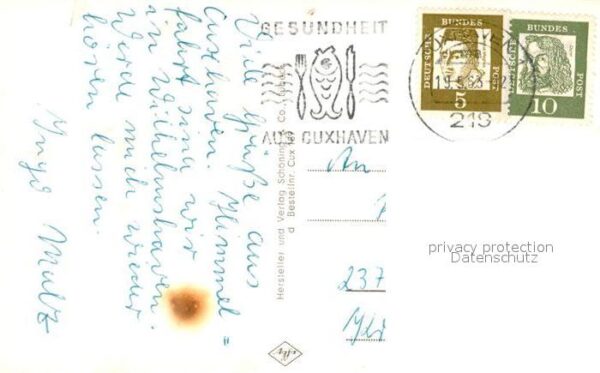 Viele Grüße aus
Cuxhaven. Himmel=
fahrt sind wir
in Wilhelmshaven.
Werde mich wieder
hören lassen.
Ingo
GESUNDHEIT
AUS CUXHAVEN
219
DEUTSCHE
BUNDES
POST
5
DEUTSCHE
BUNDES
POST
10
Hersteller und Verlag Schöning & Co
Bestellnr. Cux
An
237
privacy protection
Datenschutz